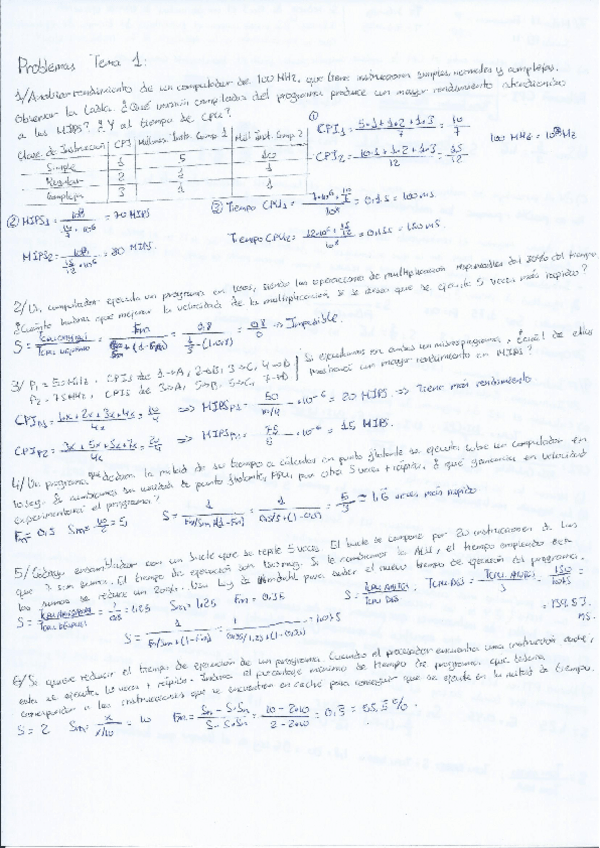 Problemas Tema 1:
1/ Analizar rendimiento de un computador de 100 MHz, que tiene instrucciones simples, normales y complejas.
Observar la tabla. ¿Qué versión compilada del programa produce un mayor rendimiento atendiendo
a los MIPS? ¿Y al tiempo de CPU?
Clase de Instrucción | CPI | Millones Inst. Comp. 1 | Mill Inst. Comp. 2
Simple 1 5 10
Regular 2 1 1
Compleja 3 1 1
① CPI1 = 5·1+1·2+1·3 / 7 = 10/7 100 MHz = 10^8 Hz
CPI2 = 10·1+1·2+1·3 / 12 = 15/12
② MIPS1 = 10^8 / 10/7 · 10^6 = 70 MIPS
MIPS2 = 10^8 / 15/12 · 10^6 = 80 MIPS.
③ Tiempo CPU1 = 7·10^6 · 10/7 / 10^8 = 0.1s = 100 ms
Tiempo CPU2 = 12·10^6 · 15/12 / 10^8 = 0.15s = 150 ms.
2/ Un computador ejecuta un programa en 100s, siendo las operaciones de multiplicación responsables del 80% del tiempo
¿Cuánto habría que mejorar la velocidad de la multiplicación si se desea que se ejecute 5 veces más rápido?
=> Imposible
3/ P1 = 50MHz. CPIs de 1->A, 2->B, 3->C, 4->D
P2 = 75MHz, CPIs de 3->A, 5->B, 5->C, 7->D
Si ejecutamos en ambos un mismo programa, ¿cuál de ellos
mostrará un mayor rendimiento en MIPS?
CPI P1 = 1x+2x+3x+4x / 4x = 10/4 => MIPS P1 = 50 / 10/4 · 10^-6 = 20 MIPS => Tiene más rendimiento
CPI P2 = 3x+5x+5x+7x / 4x = 20/4 => MIPS P2 = 75 / 5 · 10^-6 = 15 MIPS.
4/ Un programa que dedica la mitad de su tiempo a calcular en punto flotante se ejecuta sobre un computador en
10 seg. Si cambiamos su unidad de punto flotante, FPU, por otra 5 veces + rápida, ¿qué ganancia en velocidad
experimentará el programa?
Fm = 0.5 Sm = 10/2 = 5, S = 1 / Fm/Sm+(1-Fm) = 1 / 0.5/5+(1-0.5) = 5/3 = 1.6 veces más rápido
5/ Código ensamblador con un bucle que se repite 5 veces. El bucle se compone por 20 instrucciones
que 7 son sumas. El tiempo de ejecución son
las sumas se reduce un 20%. Usa Ley de Amdahl para saber el nuevo tiempo de ejecución del programa.
S = 1/0.8 = 1.25 Sm = 1.25 Fm = 0.35
S = 1 / Fm/Sm+(1-Fm) = 1 / 0.35/1.25+(1-0.35) = 1.075
= 139.53
ms.
6/ Se quiere reducir el tiempo de ejecución de un programa. Cuando el procesador encuentra una instrucción en caché,
esta se ejecuta 10 veces + rápido. Indica el porcentaje máximo de tiempo de programa que debería
corresponder a las instrucciones que se encuentren en caché para conseguir que se ejecute en la mitad de tiempo.
S = 2 Sm = x / x/10 = 10 Fm = Sm - S·Sm / S - S·Sm = 10 - 20 / 2 - 2·10 = 0.5 = 55.5%.